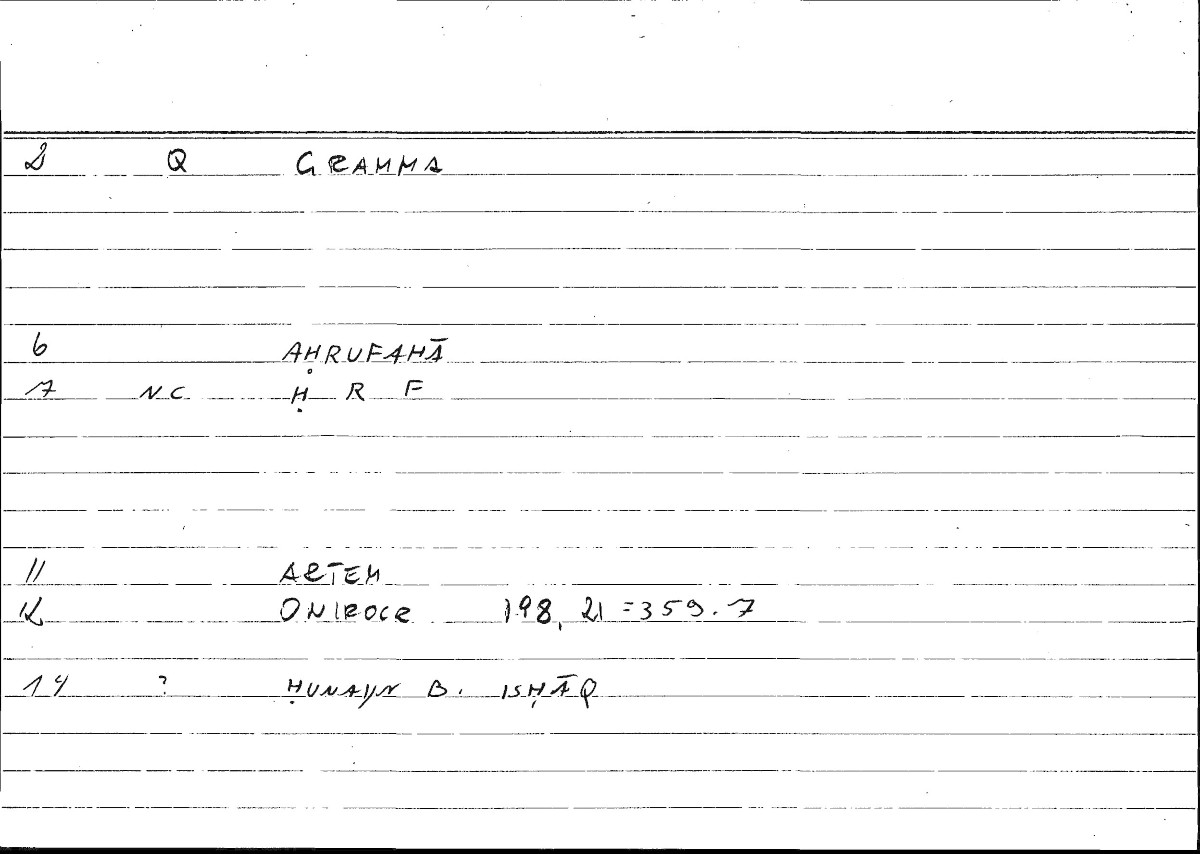 2 Q GRAMMA
6 AḤRUFAHĀ
7 NC Ḥ R F
11 ARTEM
12 ONIROCR 198, 21 = 359.7
14 ? ḤUNAYN B. ISḤĀQ